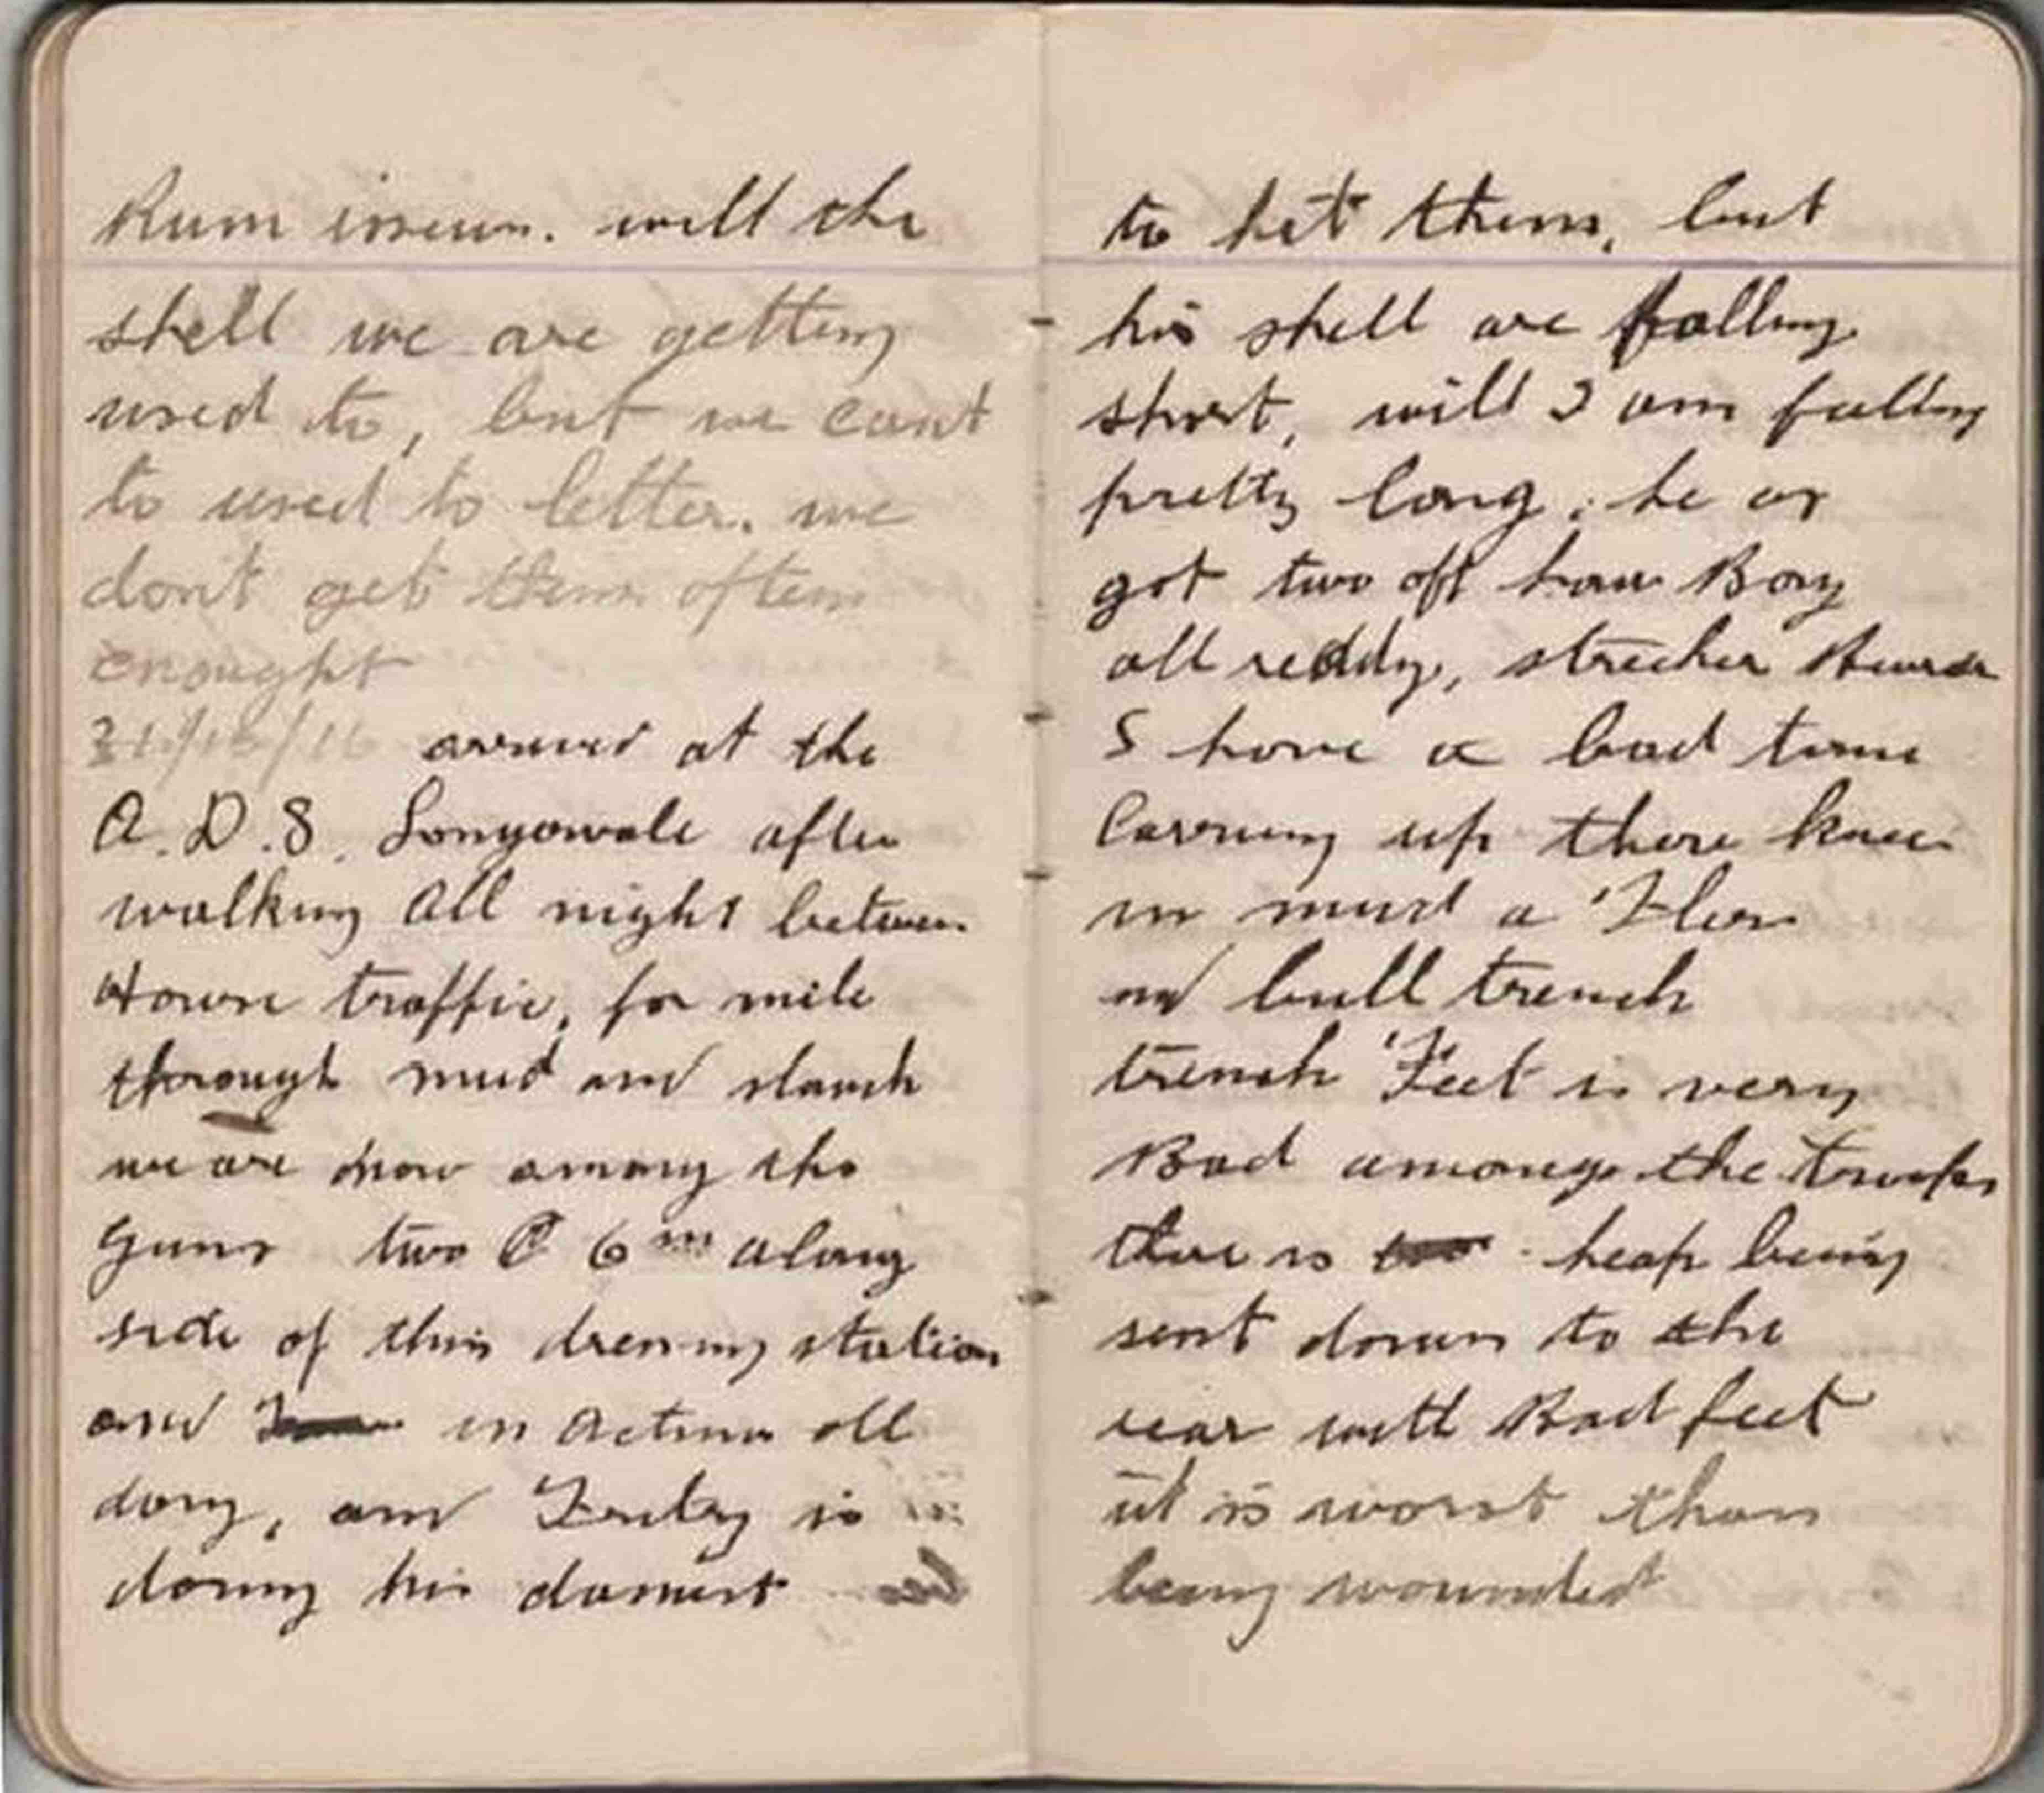 Rum isseum. will the
shell we are getting
used to, but we cant
to used to letter. we
dont get them often
enought
31/10/16 arrived at the
A.D.S. Longowale after
walking all night between
traffic, for mile
through mud and slaush
we are now among the
guns two 6 in along
side of this dressing station
and in action all
day, and Fritz is
doing his damest
to het them, but
his shell are falling
short, will I am falling
pretty long. he as
got two off haur Boy
all reddy, strecher Bearer
S have a bad time
Carring up there knee
in mud a Fler
and bull trench
trench Feet is very
Bad amongs the troops
thar is heap being
sent down to the
rear with Bad feet
it is worst than
being wounded